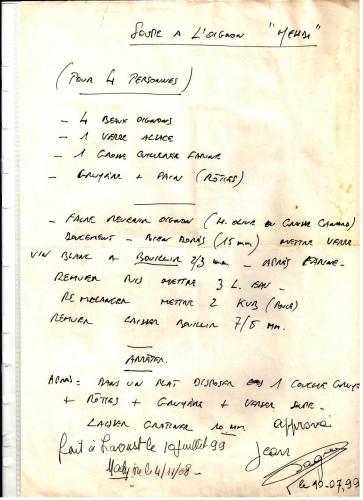 SOUPE A L'OIGNON "MEHDI"
(POUR 4 PERSONNES)
- 4 BEAUX OIGNONS
- 1 VERRE ALSACE
- 1 GROSSE CUILLERE FARINE
- GRUYÈRE + PAIN (RÔTIES)
- FAIRE REVENIR OIGNON (H. OLIVE OU GRAISSE CANARD)
DOUCEMENT - BIEN DORÉS (15 mm) METTRE VERRE
VIN BLANC A BOUILLIR 2/3 mm - APRÈS FARINE -
REMUER PUIS METTRE 3 L. EAU -
REMELANGER METTRE 2 KUB (POULE)
REMUER LAISSER BOUILLIR 7/8 mm.
ARRÊTER.
APRÈS = DANS UN PLAT DISPOSER 1 COUCHE GRUY
+ RÔTIES + GRUYÈRE + VERSER SUPE -
LAISSER GRATINER 10 MM approuvé
fait à le 10 juillet 99 Jean
le 4/11/08 -
le 10.07.99